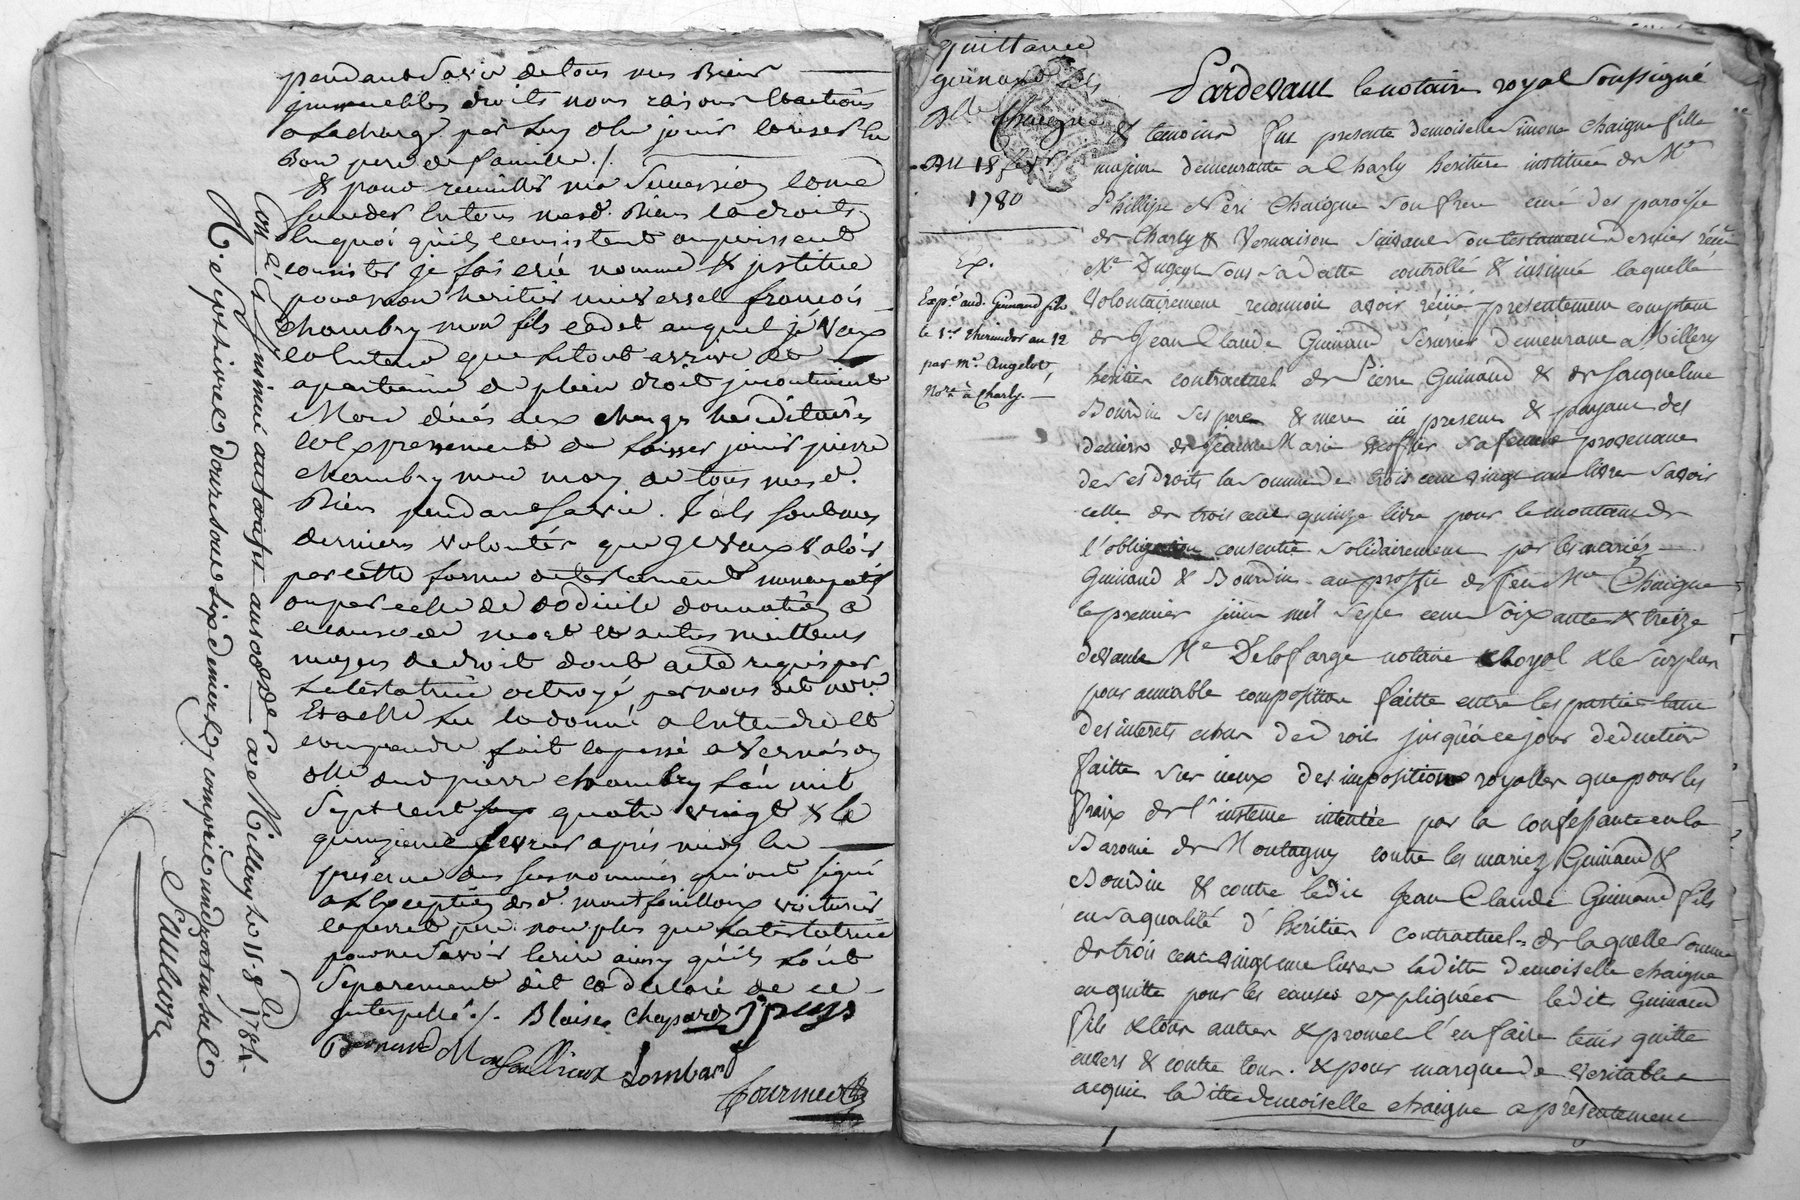 pendant sa vie de tous mes Biens
immeubles droits noms raisons & actions
a la charge par luy d'en jouir & user en
Bon pere de famille ./.
& pour recueillir ma succession & me
succeder en tous mesd. Biens & droits
en quoi qu'ils consistent ou puissent
consister je fais crée nomme & jnstitue
pour mon heritier universel françois
chambry mon fils cadet auquel je veux
& entend que le tout arrive &
apartienne de plein droit jncontinent
Mon décés aux charges héréditaires
& expressement de laisser jouir pierre
chambry mon mary de tous mesd.
Biens pendant sa vie. Tels sont mes
derniers volontés que je veux valoir
par cette forme de testament nuncupatif
ou par celle de codicile donnation a
cause de mort & autres meilleurs
moyens de droit dont acte requis par
la testatrice octroyé par nous dit not.re
Et a elle lu & donné a entendre &
comprendre fait & passé a Vernaison
chés dud pierre chambry l'an mil
sept cent quatre vingt & le
quinzieme fevrier après midy en
présence des susnommés qui ont signé
a l'exception desd. montfouilloux voiturier
& perret pere non plus que la testatrice
pour ne savoir écrire ainsy qu'ils l'ont
separement dit & declaré de ce
jnterpellé ./. Blaise Chapard J: puys
Bernard Monfouilloux Lombard
Con.lé & jnsinué au tarif au 100.e den.er a Millery le 11. 8.bre 1784
R. sept livres douze sous six deniers y compris le
Saulion
quittance
Guinand fils
D.lle Chaigne
Du 18 fevr
1780
Exp.é aud. Guinand fils
le 1.er thermidor an 12
par m.e Angelot,
No.re à Charly.
Pardevant le notaire royal soussigné
& temoins fut presente demoiselle Simone Chaigne fille
majeure demeurante a Charly heritiere instituée de M.re
Phillipe Neri Chaigne son frere curé des paroisse
de Charly & Vernaison suivant son testament dernier réçu
M.e Dugeyt sous sa datte controllé & insinué laquelle
volontairement reconnoit avoir réçu presentement comptant
de Jean Claude Guinand Serurier demeurant a Millery
heritier contractuel de Pierre Guinand & de Jacqueline
Bourdin ses pere & mere ici present & payant des
deniers de Jeanne Marie sa femme provenant
de ses droits la somme de trois cent vingt une livres savoir
celle de trois cent quinze livre pour le montant de
l'obligation consentie solidairement par les mariéz
Guinand & Bourdin au proffit de feu M.re Chaigne
le premier juin mil sept cent soixante & treize
devant M.e Delafarge notaire Royal & le surplus
pour amiable composition faitte entre les parties tant
des interets echus de droit jusqu'à ce jour deduction
faitte sur iceux des impositions royalles que pour les
fraix de l'instence intentée par la confessante en la
Baronie de Montagny contre les mariez Guinand &
Bourdin & contre ledit Jean Claude Guinand fils
en sa qualité d'héritier contractuel de laquelle somme
de trois cent vingt une livres laditte demoiselle chaigne
en quitte pour les causes expliquées ledit Guinand
fils & tous autres & promet l'en faire tenir quitte
envers & contre tous. & pour marque de veritable
acquit laditte demoiselle chaigne a présentement